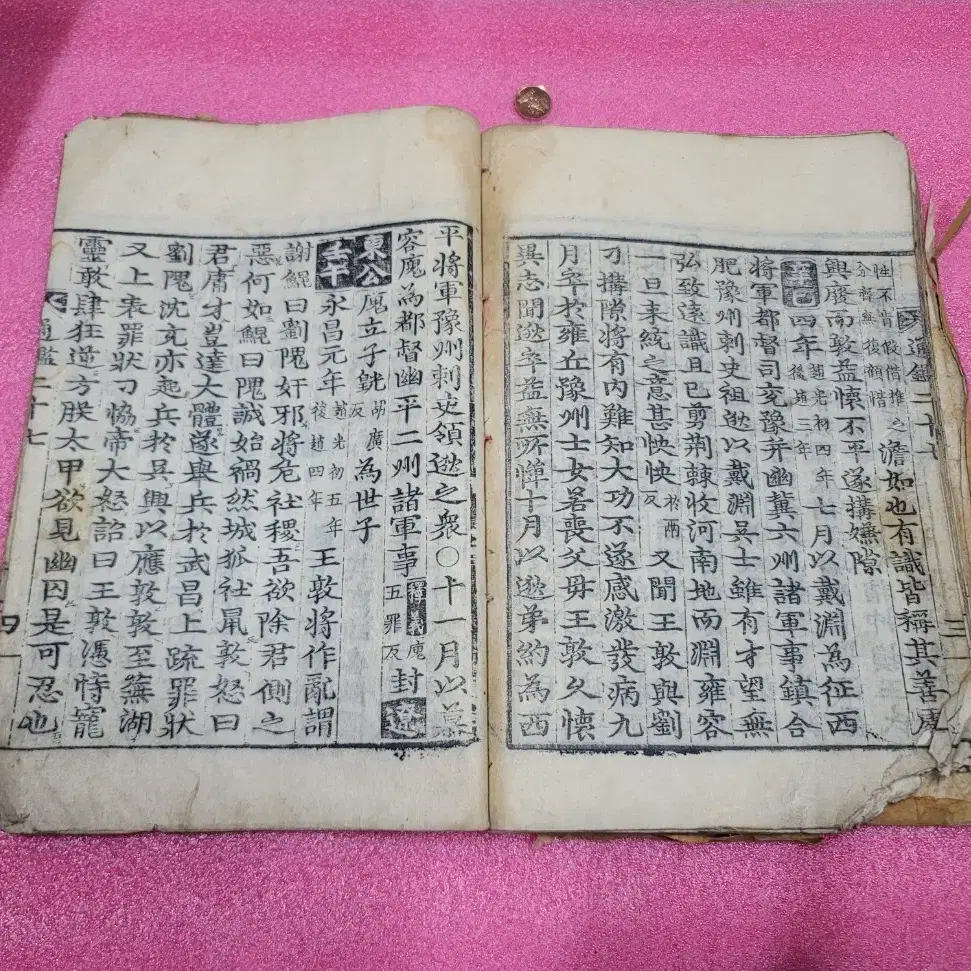 澹如也有識皆稱其善處
興廢而敦益懷不平遂搆嫌隙
辛巳四年趙光初四年後趙三年七月以戴淵為征西
將軍都督司兗豫并幽冀六州諸軍事鎮合
肥豫州刺史祖逖以戴淵吳士雖有才望無
弘致遠識且已剪荊棘收河南地而淵雍容
一旦来統之意甚怏怏於兩反又聞王敦與劉
刁搆隙將有内難知大功不遂感激發病九
月卒於雍丘豫州士女若喪父母王敦久懷
異志聞逖卒益無所憚十月以逖弟約為西
平將軍豫州刺史領逖之衆○十一月以慕
容廆為都督幽平二州諸軍事釋義廆五罪反封遼
東公廆立子皝胡廣反為世子
壬午永昌元年趙光初五年後趙四年王敦將作亂謂
謝鯤曰劉隗奸邪將危社稷吾欲除君側之
惡何如鯤曰隗誠始禍然城狐社鼠敦怒曰
君庸才豈達大體遂舉兵於武昌上疏罪狀
劉隗沈充亦起兵於吳興以應敦敦至蕪湖
又上表罪狀刁協帝大怒詔曰王敦憑恃寵
靈敢肆狂逆方朕太甲欲見幽囚是可忍也
通鑑二十七
四一